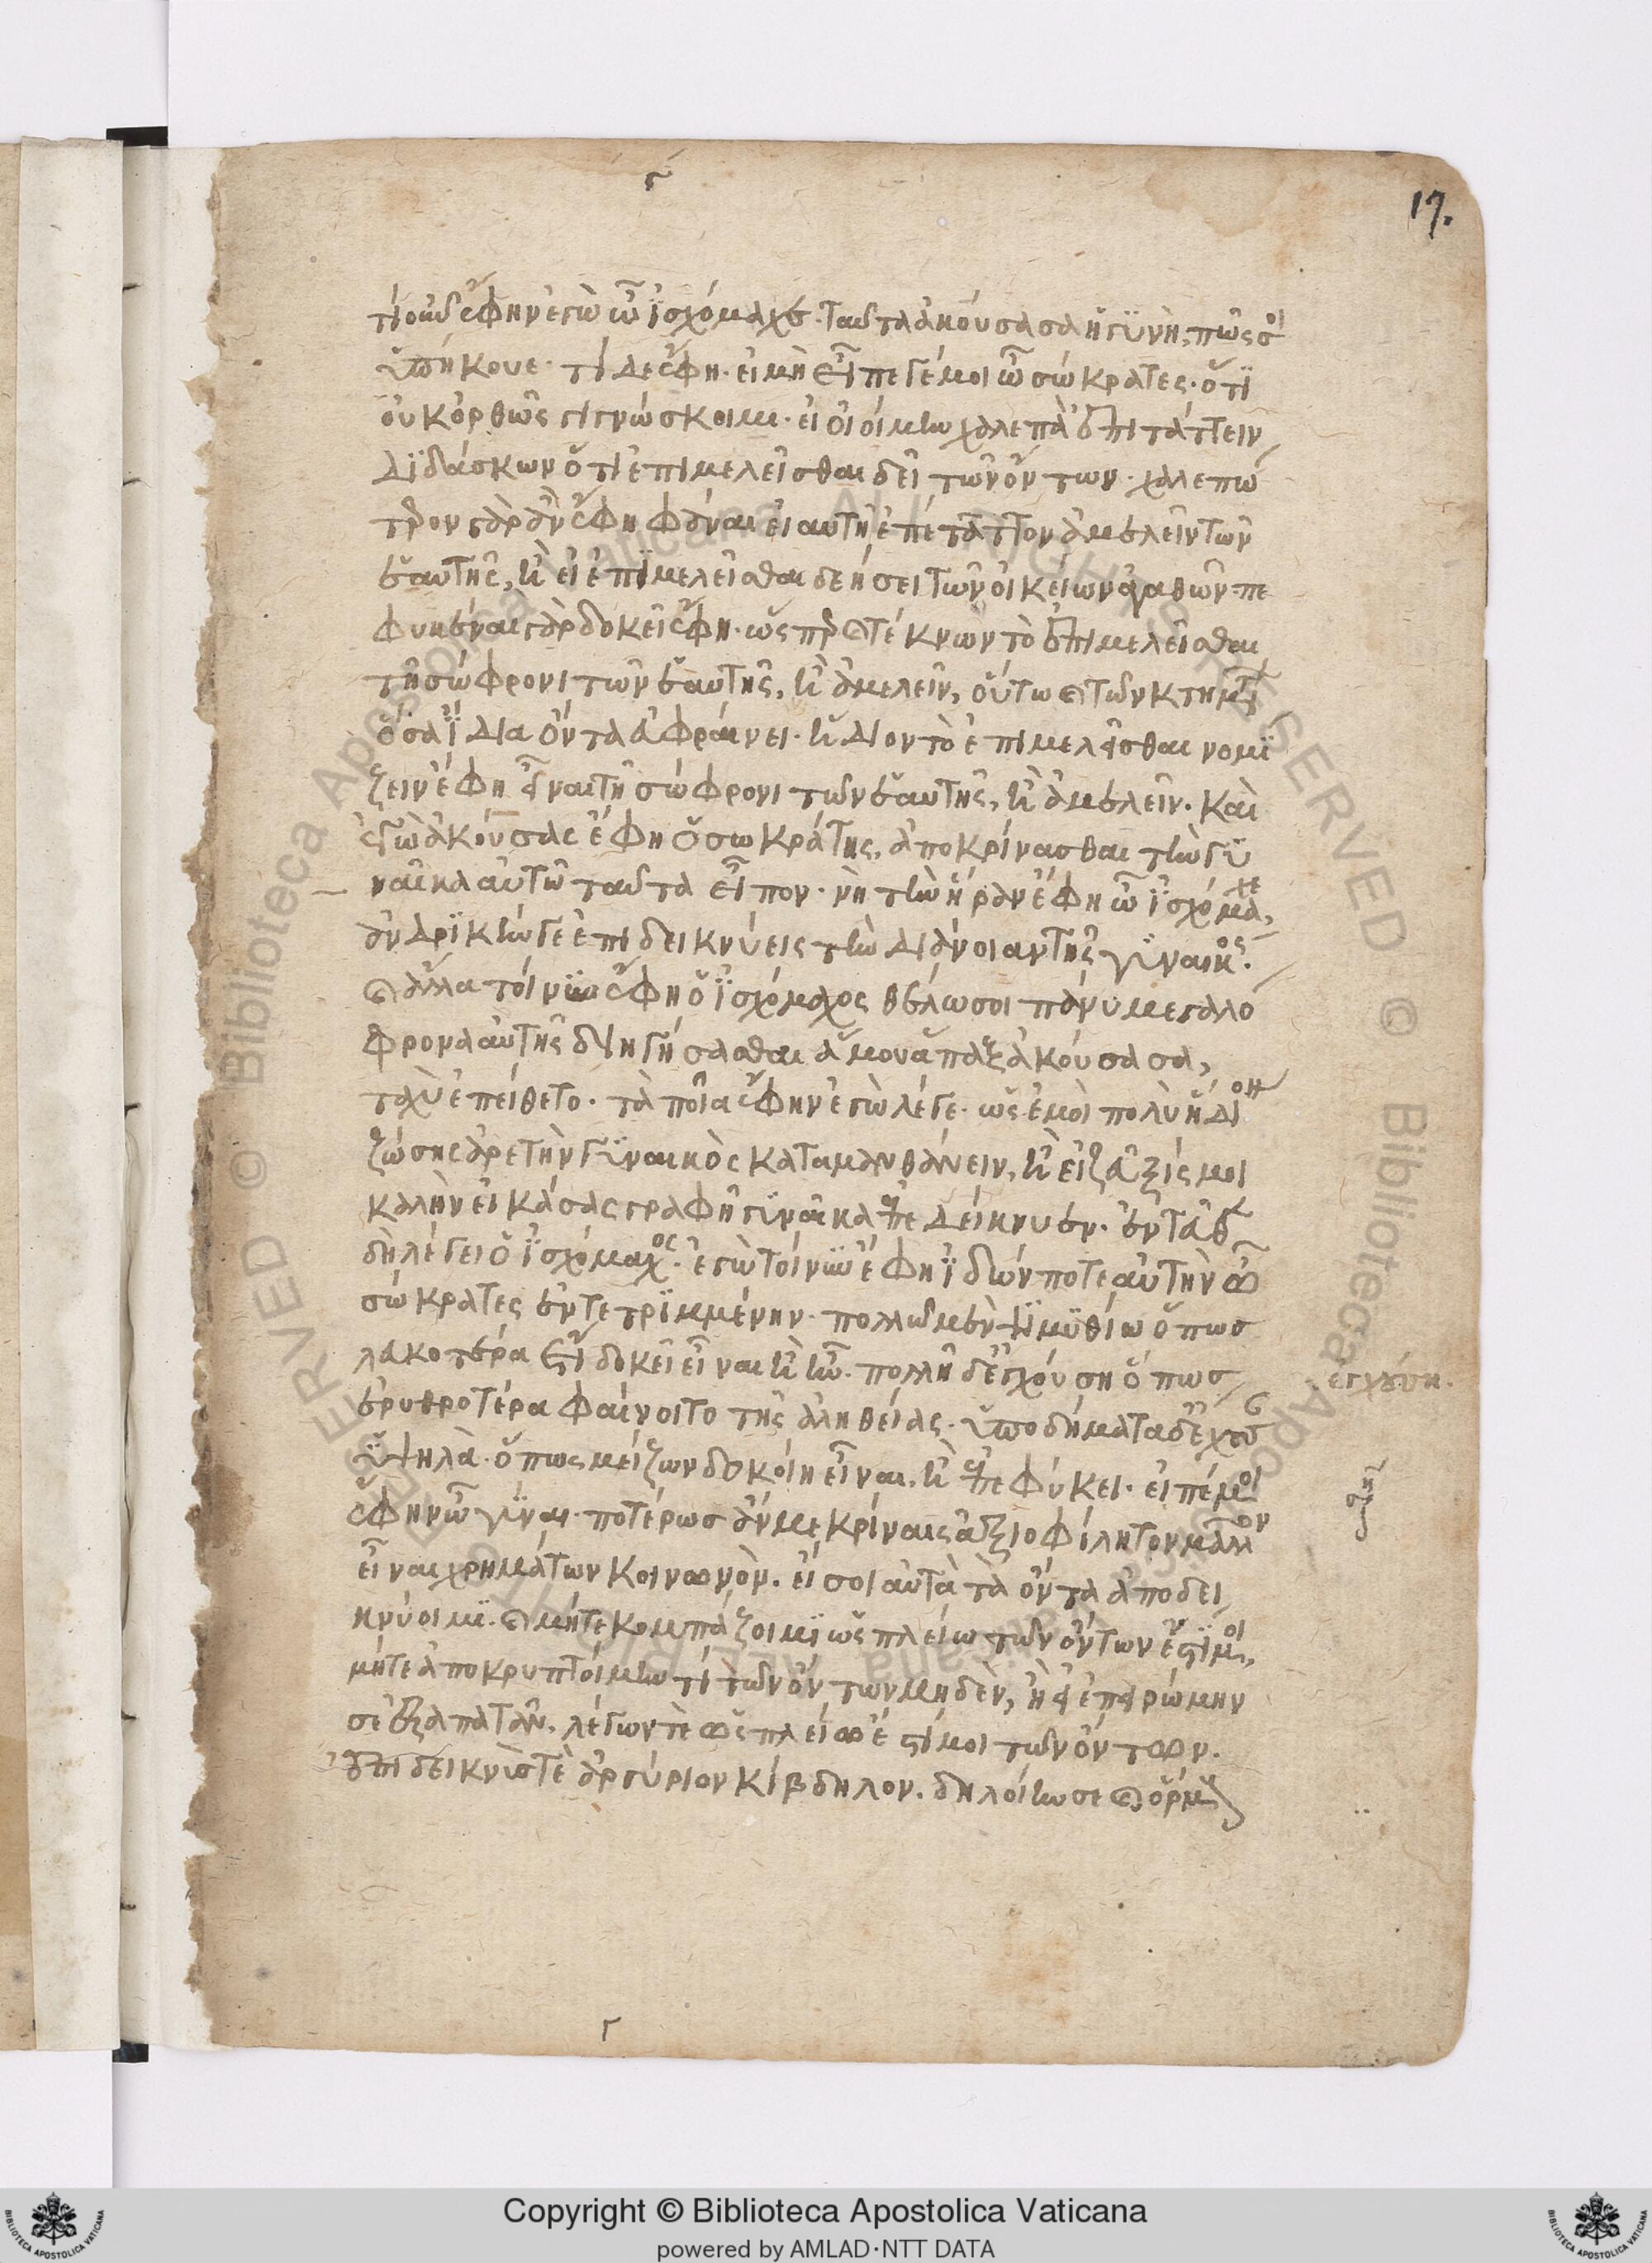 17.
τί οὖν ἔφην ἐγὼ ὦ ἰσχόμαχε. ταῦτα ἀκούσασα ἡ γϋνὴ, πῶς σοι
ὑπήκουε· τί δε ἔφη· εἰ μὴ εἶπέ γέ μοι ὦ σώκρατες· ὅτι
οὐκ ὀρθῶς γιγνώσκοιμι· εἰ οἰοίμην χαλεπὰ ἐπιτάττειν
διδάσκων ὅτι ἐπιμελεῖσθαι δεῖ τῶν ὄντων· χαλεπώ
τερον γὰρ ἂν ἔφη φάναι εἰ αὐτῆ ἐπέταττον ἀμελεῖν τῶν
ἑαυτῆς, ἢ εἰ ἐπιμελεῖσθαι δεήσει τῶν οἰκείων ἀγαθῶν· πε
φυκέναι γὰρ δοκεῖ ἔφη· ὥσπερ καὶ τέκνων τὸ ἐπιμελεῖσθαι
τῆ σώφρονι τῶν ἑαυτῆς, ἢ ἀμελεῖν, οὕτω καὶ τῶν κτημάτων
ὅσα ἴδια ὄντα εὐφραίνει· ἥδιον τὸ ἐπιμελεῖσθαι νομί
ζειν ἔφη εἶναι τῆ σώφρονι τῶν ἑαυτῆς, ἢ ἀμελεῖν. καὶ
ἐγὼ ἀκούσας ἔφη ὁ σωκράτης, ἀποκρίνασθαι τὴν γϋ
ναῖκα αὐτῶ ταῦτα εἶπον· νὴ τὴν ἥραν ἔφη ὦ ἰσχόμαχε,
ἀνδρικήν γε ἐπιδεικνύεις τὴν διάνοιαν τῆς γϋναικός.
καὶ ἄλλα τοίνυν ἔφη ὁ ἰσχόμαχος θέλω σοι πάνυ μεγαλό
φρονα αὐτῆς διηγήσασθαι ἅ μου ἅπαξ ἀκούσασα,
ταχὺ ἐπείθετο· τὰ ποῖα ἔφην ἐγὼ λέγε· ὡς ἐμοὶ πολὺ ἥδιον
ζώσης ἀρετὴν γϋναικὸς καταμανθάνειν, ἢ εἰ ζεῦξίς μοι
καλὴν εἰκάσας γραφῆ γϋναῖκα ἐπεδείκνυεν. ἐνταῦθα
δὴ λέγει ὁ ἰσχόμαχος· ἐγὼ τοίνυν ἔφη ἰδών ποτε αὐτὴν ὦ
σώκρατες ἐντετριμμένην· πολλῶ μὲν ψιμυθίω ὅπως
λευκοτέρα ἔτι δοκεῖ εἶναι ἢ ἦν. πολλῆ δ' ἐγχούση ὅπως
ἐρυθροτέρα φαίνοιτο τῆς ἀληθείας. ὑποδήματα δ' ἔχουσαν
ὑψηλὰ. ὅπως μείζων δοκοίη εἶναι. ἢ ἐπεφύκει· εἰπέ μοι
ἔφην ὦ γύναι. ποτέρως ἄν με κρίναις ἀξιοφίλητον μᾶλλον
εἶναι χρημάτων κοινωνόν. εἴ σοι αὐτὰ τὰ ὄντα ἀποδει
κνύοιμι. καὶ μήτε κομπάζοιμι ὡς πλείω τῶν ὄντων ἔστι μοι,
μήτε ἀποκρυπτοίμην τί τῶν ὄντων μηδέν, ἢ εἰ ἐπειρώμην
σὲ ἐξαπατᾶν. λέγων τε ὡς πλείω ἐστί μοι τῶν ὄντων.
ἐπιδεικνύς τε ἀργύριον κίβδηλον. δηλοίην σε καὶ ὅρμους
ἐγχούση.
Copyright © Biblioteca Apostolica Vaticana
powered by AMLAD·NTT DATA